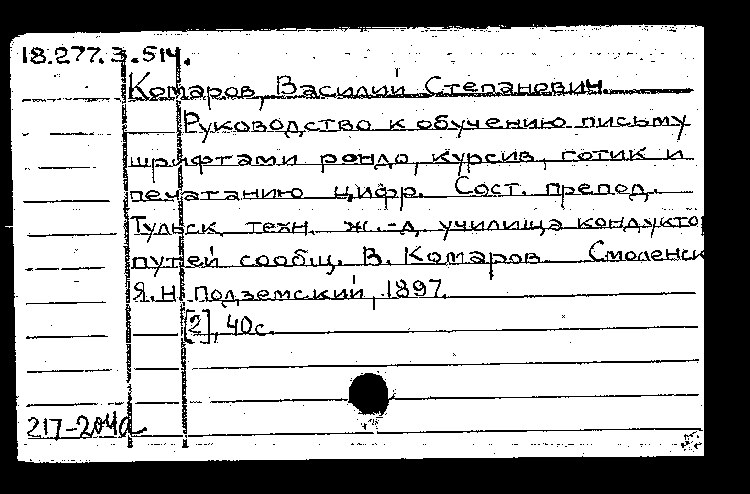 18.277.3.514.
Комаров, Василий Степанович.
Руководство к обучению письму
шрифтами рондо, курсив, готик и
печатанию цифр. Сост. препод.
Тульск. техн. ж.-д. училища кондуктор
путей сообщ. В. Комаров. Смоленск
Я.Н. Подземский, 1897.
[2], 40с.
217-204а